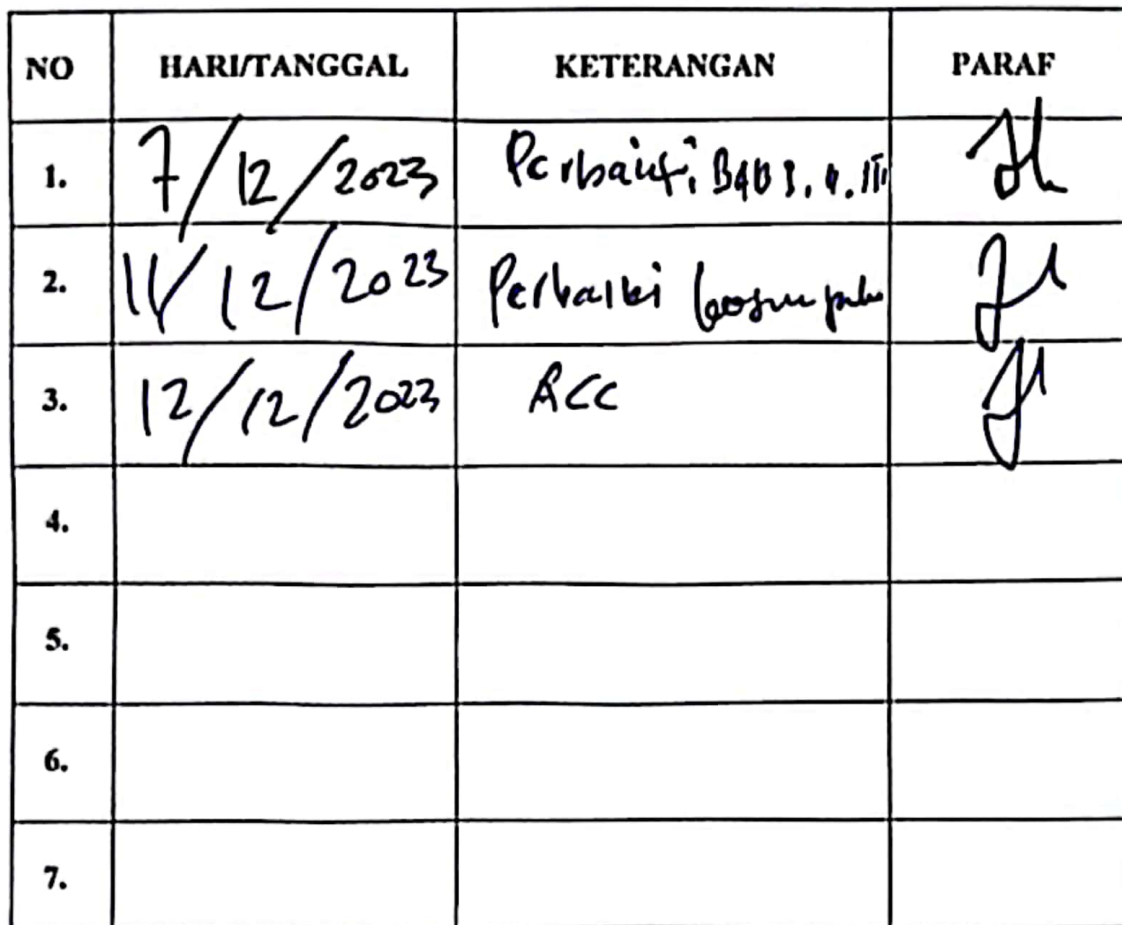 NO HARI/TANGGAL KETERANGAN PARAF
1. 7/12/2023 Perbaiki BAB I, II, III
2. 11/12/2023 Perbaiki
3. 12/12/2023 ACC
4.
5.
6.
7.